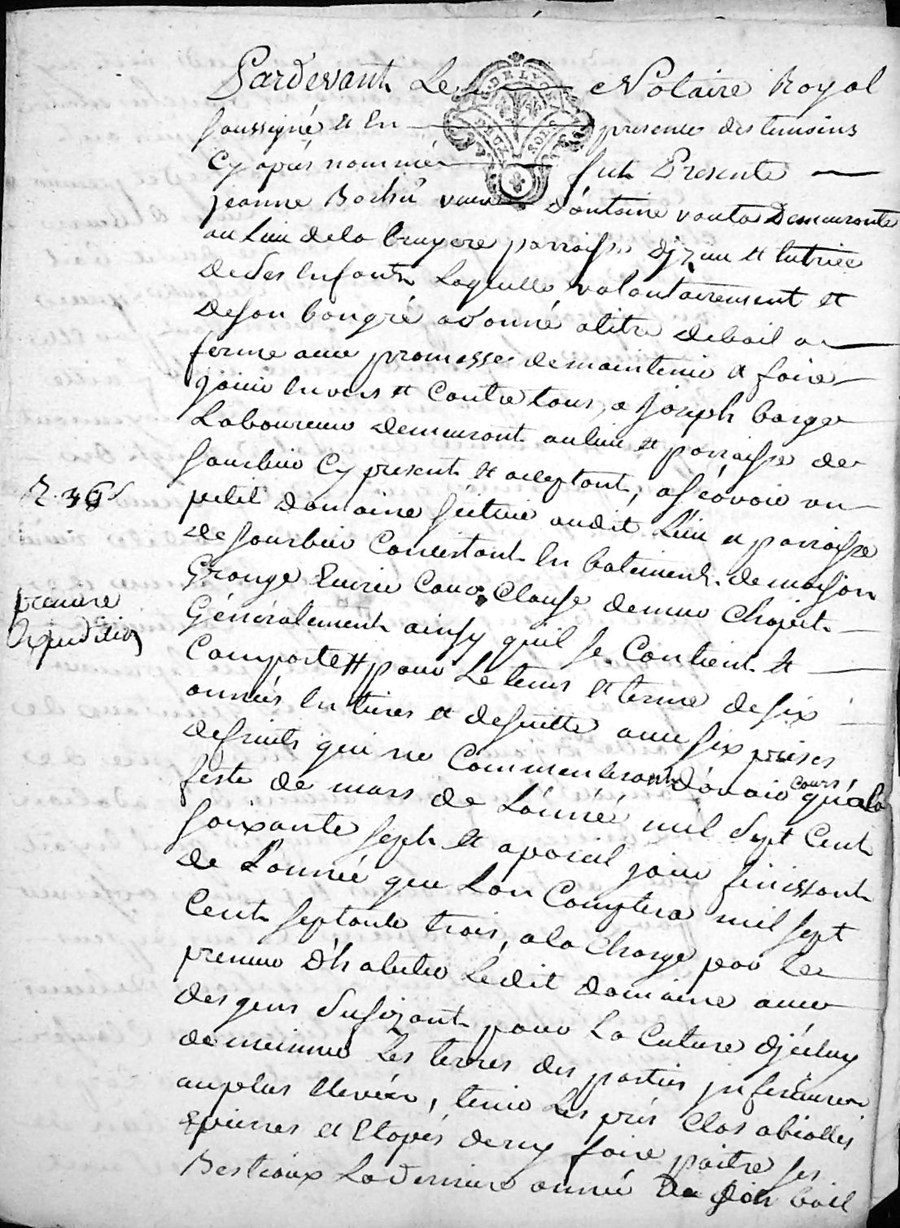 Pardevant Le Notaire Royal
Soussigné et En presence des temoins
Cy apres nommés fut Presente
jeanne veuve d'antoine Demeurante
au Lieu dela bruyere parroisse et tutrice
de Ses Enfants Laquelle volontairement et
de son bongré a donné a titre de bail a
ferme avec promesse de maintenir et faire
jouir Envers et Contre tous, a joseph barge
Laboureur demeurant au lieu et parroisse de
Sourbier Cy present et aceptant, a sçavoir un
petit domaine situé audit Lieu et parroisse
de Sourbier Consistant En batiments de maison
Grange Ecurie Cour
Généralement ainsy quil Se Contient et
Comporte pour Le tems et terme de six
années Entieres et de suitte avec six prises
de fruits qui ne Commenceront d'avoir cours qu'a la
feste de mars de L'année mil Sept Cent
Soixante Sept et a pareil jour finissant
de L'année que Lon Comptera mil Sept
Cent Septante trois, a la Charge par le
preneur D'habiter Ledit domaine avec
des gens Sufizant pour La Culture
Les terres des parties inferieures
au plus Elevées, tenir Les prés Clos
Epierrés et Etapés de ny faire paitre Ses
Bestiaux La derniere année De Son bail
R. 36 s
premiere
Expedition
DE LYON
SOLS